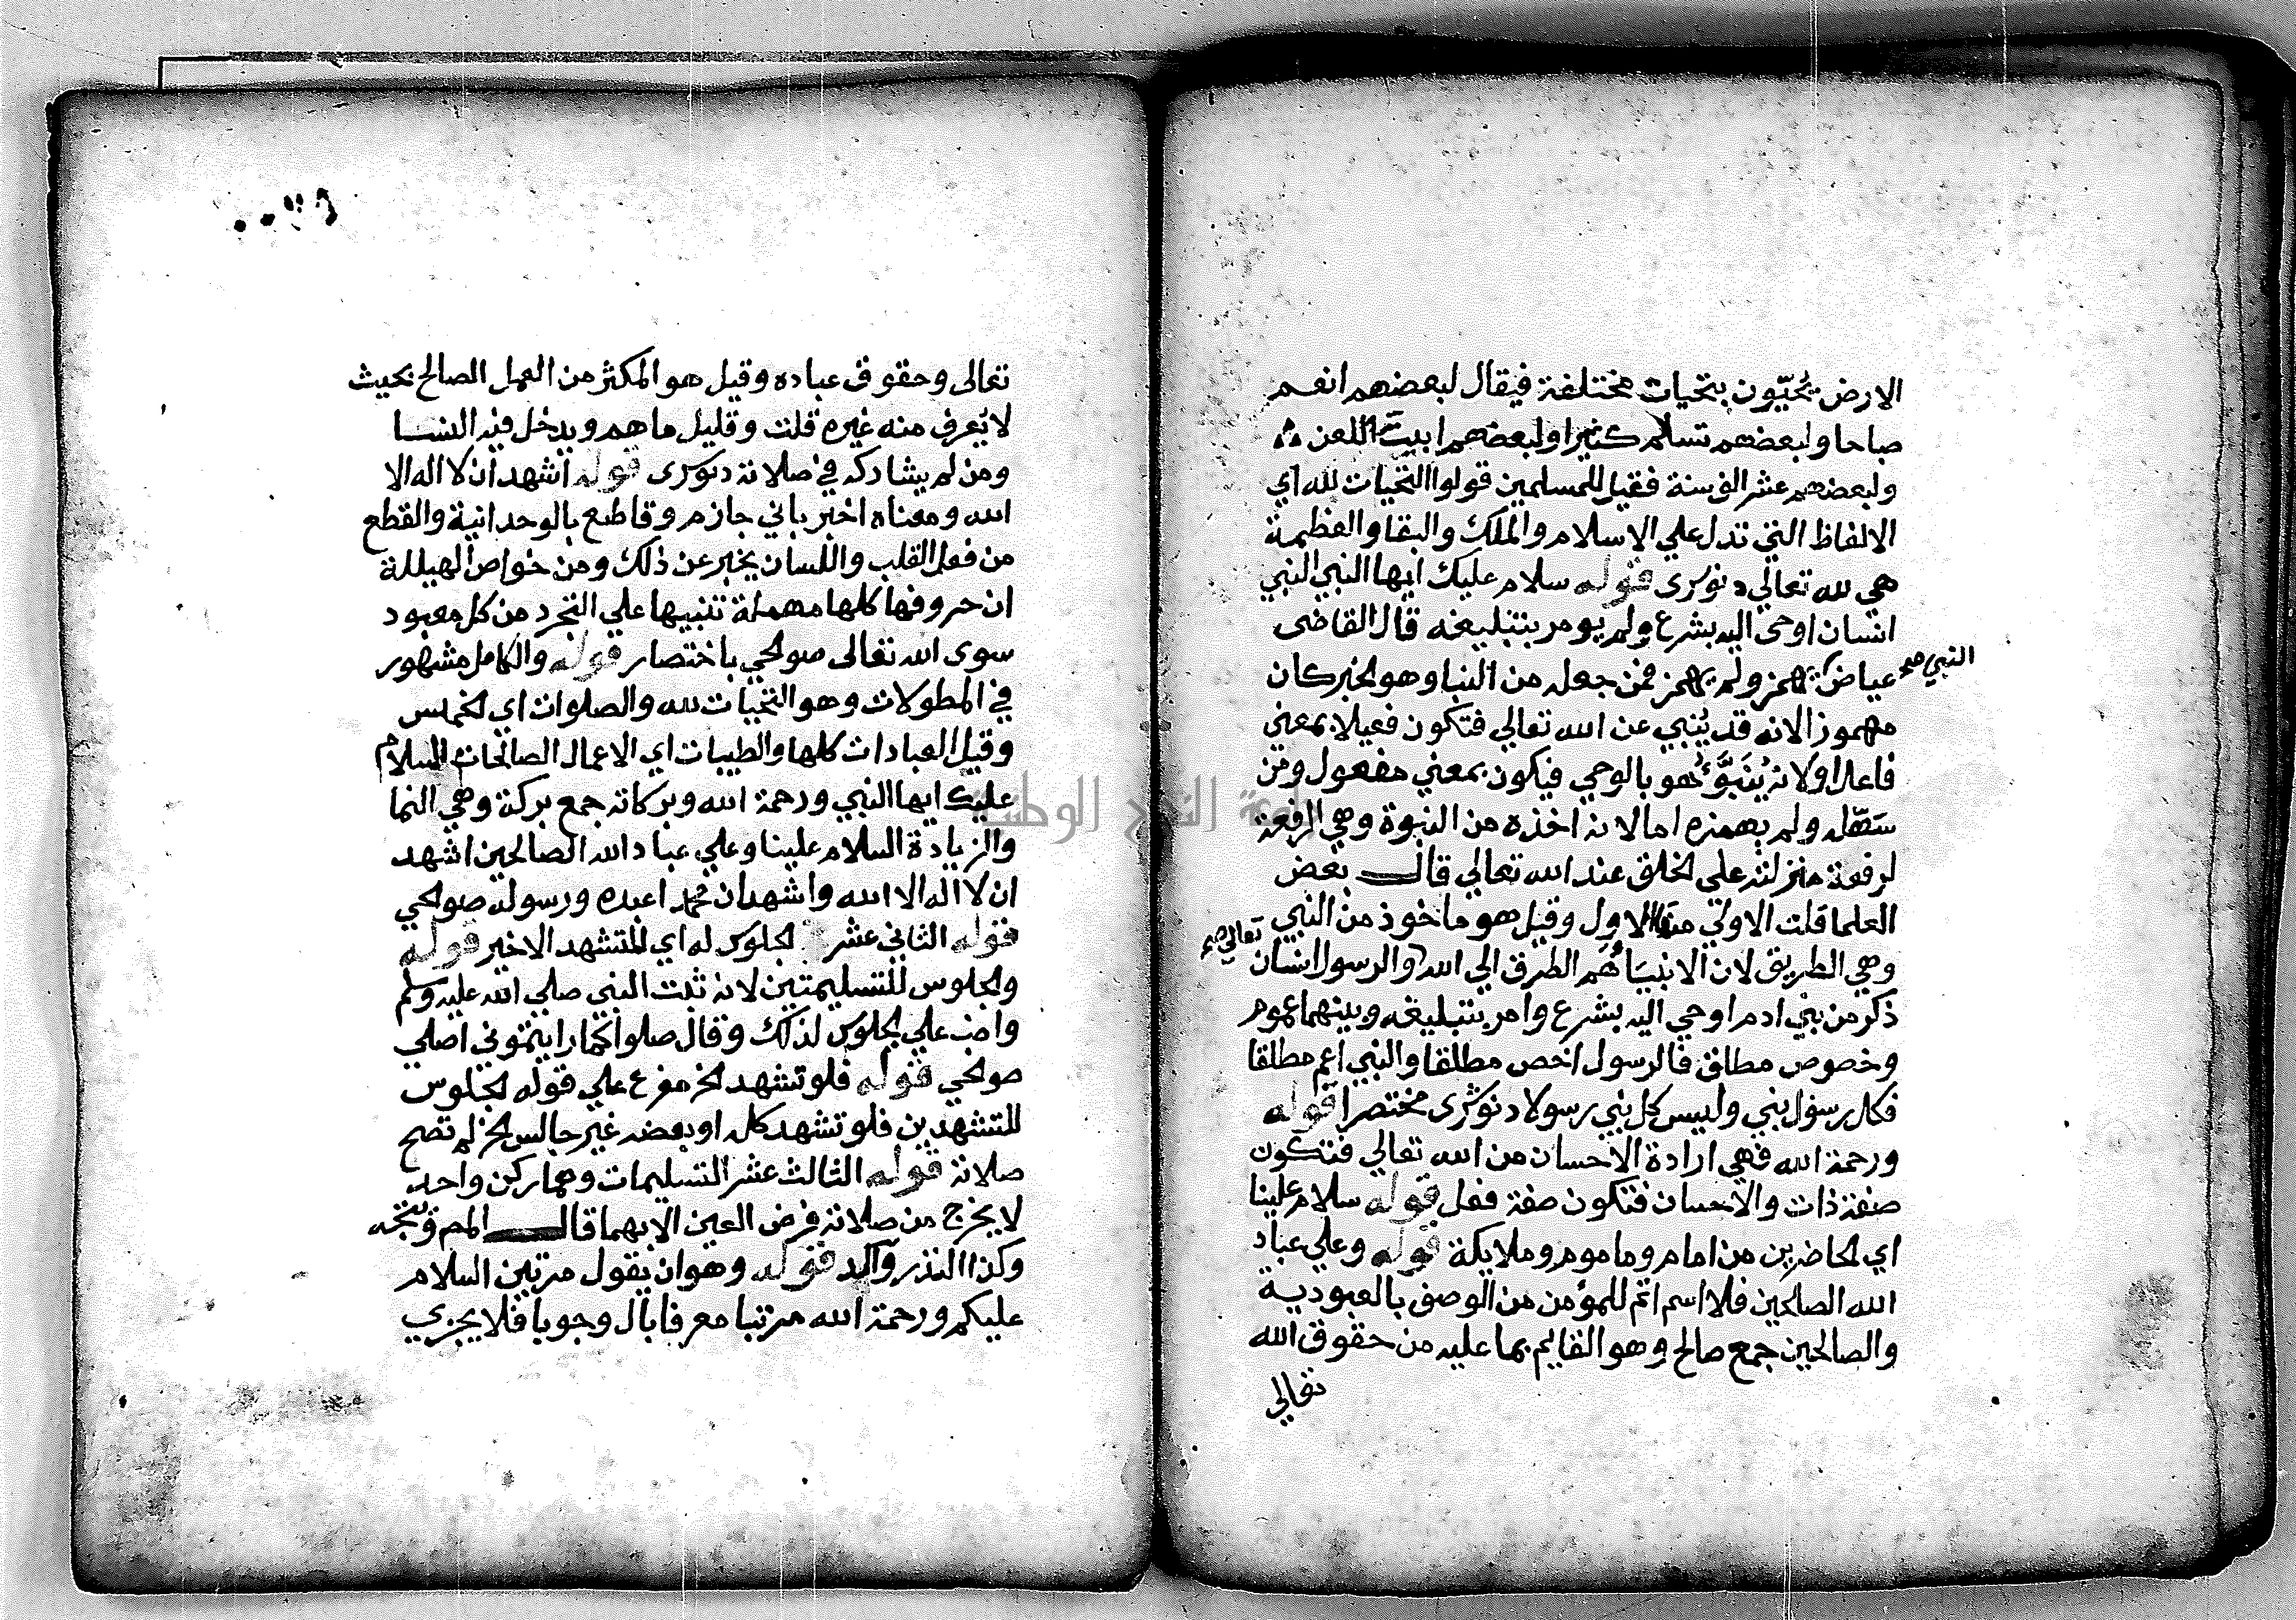 الارض يُحَيّون بتحيات مختلفة فيقال لبعضهم انعم
صباحا ولبعضهم تسلم كثيرا ولبعضهم ابيت اللعن
ولبعضهم عش الف سنة فقيل للمسلمين قولوا التحيات لله اي
الالفاظ التي تدل علي الاسلام والملك والبقا والعظمة
هي لله تعالي دنوشرى قوله سلام عليك ايها النبي النبي
انسان اوحى اليه بشرع ولم يومر بتبليغه قال القاضى
النبي صح
عياض يهمز ولم يهمز فمن جعله من النبا وهو الخبر كان
مهموزا لانه قد يُنبي عن الله تعالي فتكون فعيلا بمعني
فاعل او لانه يُنَبَّؤُ هو بالوحي فيكون بمعني مفعول ومن
سَهّل ولم يهمزه اما لانه اخذه من النبوة وهي الرفعة
لرفعة منزلته علي الخلق عند الله تعالي قال بعض
العلما قلت الاولي منه الاول وقيل هو ماخوذ من النبي
تعالي صح
وهي الطريق لان الانبيَا هُم الطرق الي الله والرسول انسان
ذكر من بني ادم اوحي اليه بشرع وامر بتبليغه وبينهما عموم
وخصوص مطلق فالرسول اخص مطلقا والنبي اعم مطلقا
فكل رسول نبي وليس كل نبي رسولا دنوشرى مختصرا قوله
ورحمة الله فهي ارادة الاحسان من الله تعالي فتكون
صفة ذات والاحسان فتكون صفة فعل قوله سلام علينا
اي الحاضرين من امام وماموم وملايكة قوله وعلي عباد
الله الصالحين فلا اسم اتم للمؤمن من الوصف بالعبودية
والصالحين جمع صالح وهو القايم بما عليه من حقوق الله
تعالي
تعالى وحقوق عباده وقيل هو المكثر من العمل الصالح بحيث
لا يُعرف منه غيره قلت وقليل ما هم ويدخل فيه النسا
ومن لم يشاركه في صلاته دنوشرى قوله اشهد ان لا اله الا
الله ومعناه اخبر باني جازم وقاطع بالوحدانية والقطع
من فعل القلب واللسان يخبر عن ذلك ومن خواص الهيللة
ان حروفها كلها مهملة تنبيها علي التجرد من كل معبود
سوى الله تعالى صوالحي باختصار قوله والكامل مشهور
في المطولات وهو التحيات لله والصلوات اي الخمس
وقيل العبادات كلها والطيبات اي الاعمال الصالحات السلام
عليك ايها النبي ورحمة الله وبركاته جمع بركة وهي النما
والزيادة السلام علينا وعلي عباد الله الصالحين اشهد
ان لا اله الا الله واشهد ان محمدا عبده ورسوله صوالحي
قوله الثاني عشر الجلوس له اي للتشهد الاخير قوله
والجلوس للتسليمتين لانه ثبت النبي صلي الله عليه وسلم
واضب علي الجلوس لذلك وقال صلوا كما رايتموني اصلي
صوالحي قوله فلو تشهد الخ مفرع علي قوله الجلوس
للتشهد ين فلو تشهد كله او بعضه غير جالس الخ لم تصح
صلاته قوله الثالث عشر التسليمات وهما ركن واحد
لا يخرج من صلاته فرض العين الا بهما قال المص ويتجه
وكذا النذر وآكد قوله وهو ان يقول مرتين السلام
عليكم ورحمة الله مرتبا معرفا بال وجوبا فلا يجزي